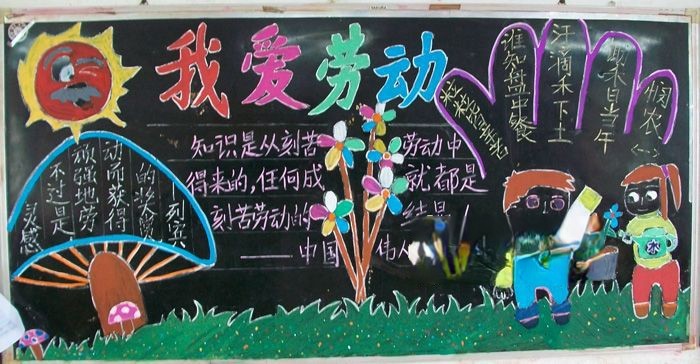 我爱劳动
灵感
不过是
顽强地劳
动而获得
的奖赏
列宾
知识是从刻苦劳动中
得来的,任何成就都是
刻苦劳动的结果!
——中国伟人
悯农
<一>
锄禾日当午
汗滴禾下土
谁知盘中餐
粒粒皆辛苦
水